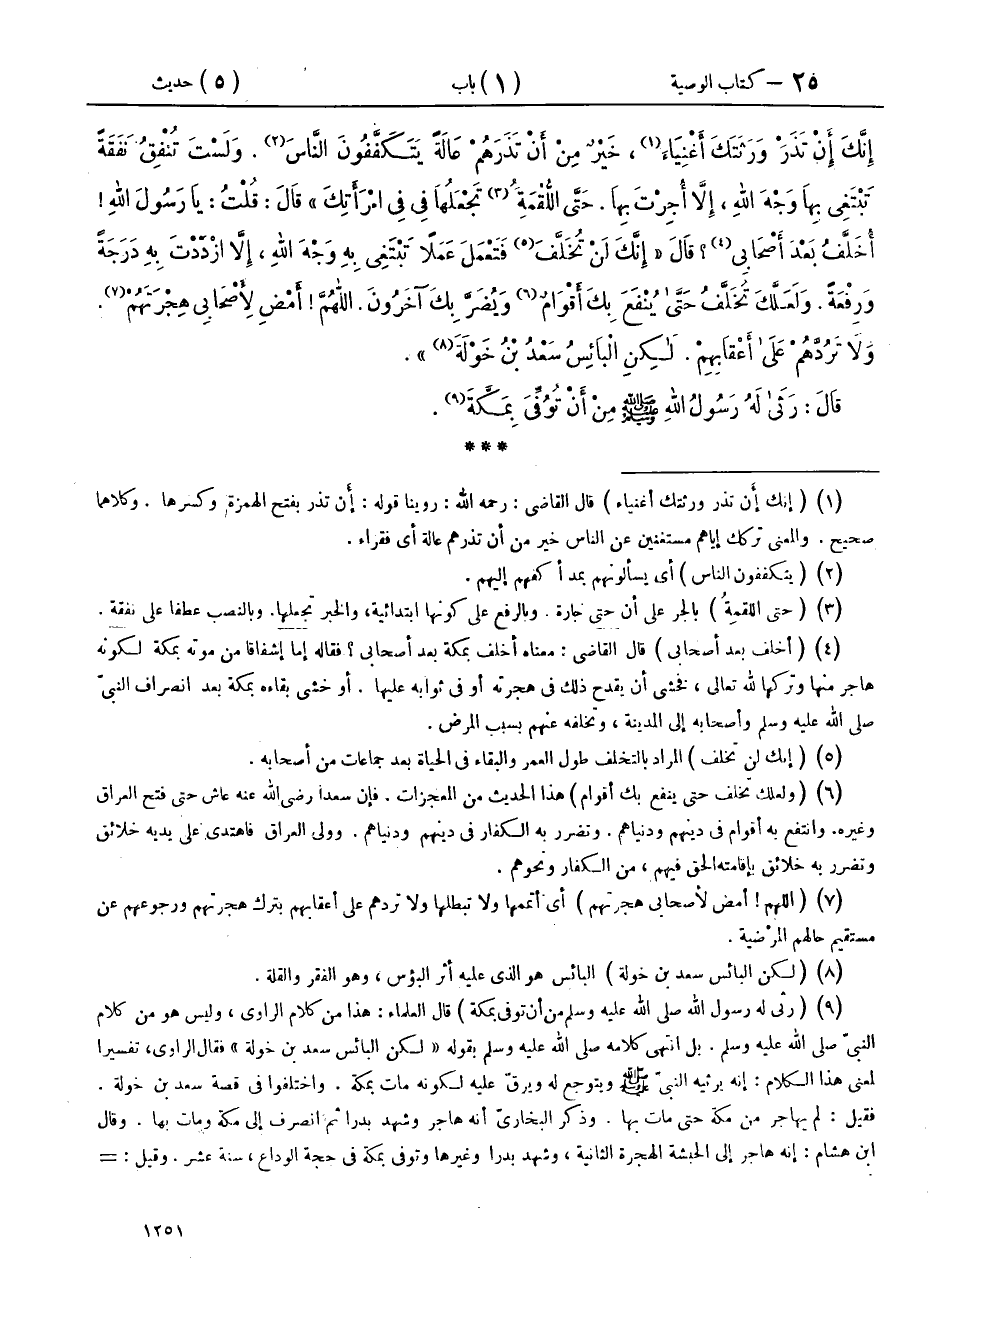 ٢٥ – كتاب الوصية (١) باب (٥) حديث
إِنَّكَ أَنْ تَذَرَ وَرَثَتَكَ أَغْنِيَاءَ(١) ، خَيْرٌ مِنْ أَنْ تَذَرَهُمْ عَالَةً يَتَكَفَّفُونَ النَّاسَ(٢) . وَلَسْتَ تُنْفِقُ نَفَقَةً
تَبْتَغِى بِهَا وَجْهَ اللهِ ، إِلَّا أُجِرْتَ بِهَا . حَتَّى اللُّقْمَةُ(٣) تَجْعَلُهَا فِى فِى امْرَأَتِكَ » قَالَ : قُلْتُ : يَا رَسُولَ اللهِ !
أُخَلَّفُ بَعْدَ أَصْحَابِى(٤) ؟ قَالَ « إِنَّكَ لَنْ تُخَلَّفَ(٥) فَتَعْمَلَ عَمَلًا تَبْتَغِى بِهِ وَجْهَ اللهِ ، إِلَّا ازْدَدْتَ بِهِ دَرَجَةً
وَرِفْعَةً . وَلَعَلَّكَ تُخَلَّفُ حَتَّىٰ يُنْفَعَ بِكَ أَقْوَامٌ(٦) وَيُضَرَّ بِكَ آخَرُونَ . اللّٰهُمَّ ! أَمْضِ لِأَصْحَابِى هِجْرَتَهُمْ(٧) .
وَلَا تَرُدَّهُمْ عَلَىٰ أَعْقَابِهِمْ . لَـٰكِنِ الْبَائِسُ سَعْدُ بْنُ خَوْلَةَ(٨) » .
قَالَ : رَثَىٰ لَهُ رَسُولُ اللهِ ﷺ مِنْ أَنْ تُوُفِّىَ بِمَكَّةَ(٩) .
***
(١) ( إنك أن تذر ورثتك أغنياء ) قال القاضى : رحمه الله : روينا قوله : أن تذر بفتح الهمزة وكسرها . وكلاهما
صحيح . والمعنى تركك إياهم مستغنين عن الناس خير من أن تذرهم عالة أى فقراء .
(٢) ( يتكففون الناس ) أى يسألونهم بمد أكفهم إليهم .
(٣) ( حتى اللقمةُ ) بالجر على أن حتى جارة . وبالرفع على كونها ابتدائية، والخبر تجعلها. وبالنصب عطفا على نفقة .
(٤) ( أخلف بعد أصحابى ) قال القاضى : معناه أخلف بمكة بعد أصحابى ؟ فقاله إما إشفاقا من موته بمكة لكونه
هاجر منها وتركها لله تعالى ، فخشى أن يقدح ذلك فى هجرته أو فى ثوابه عليها . أو خشى بقاءه بمكة بعد انصراف النبىّ
صلى الله عليه وسلم وأصحابه إلى المدينة ، وتخلفه عنهم بسبب المرض .
(٥) ( إنك لن تخلف ) المراد بالتخلف طول العمر والبقاء فى الحياة بعد جماعات من أصحابه .
(٦) ( ولعلك تخلف حتى ينفع بك أقوام ) هذا الحديث من المعجزات . فإن سعدا رضى الله عنه عاش حتى فتح العراق
وغيره. وانتفع به أقوام فى دينهم ودنياهم . وتضرر به الكفار فى دينهم ودنياهم . وولى العراق فاهتدى على يديه خلائق
وتضرر به خلائق بإقامته الحق فيهم ، من الكفار ونحوهم .
(٧) ( اللهم ! أمض لأصحابى هجرتهم ) أى أتممها ولا تبطلها ولا تردهم على أعقابهم بترك هجرتهم ورجوعهم عن
مستقيم حالهم المرْضية .
(٨) ( لكن البائس سعد بن خولة ) البائس هو الذى عليه أثر البؤس ، وهو الفقر والقلة .
(٩) ( رثى له رسول الله صلى الله عليه وسلم من أن توفى بمكة ) قال العلماء : هذا من كلام الراوى ، وليس هو من كلام
النبىّ صلى الله عليه وسلم . بل انتهى كلامه صلى الله عليه وسلم بقوله « لكن البائس سعد بن خولة » فقال الراوى، تفسيرا
لمعنى هذا الكلام : إنه يرثيه النبىّ ﷺ ويتوجع له ويرقّ عليه لكونه مات بمكة . واختلفوا فى قصة سعد بن خولة .
فقيل : لم يهاجر من مكة حتى مات بها . وذكر البخارىّ أنه هاجر وشهد بدرا ثم انصرف إلى مكة ومات بها . وقال
ابن هشام : إنه هاجر إلى الحبشة الهجرة الثانية ، وشهد بدرا وغيرها وتوفى بمكة فى حجة الوداع ، سنة عشر . وقيل : =
١٢٥١